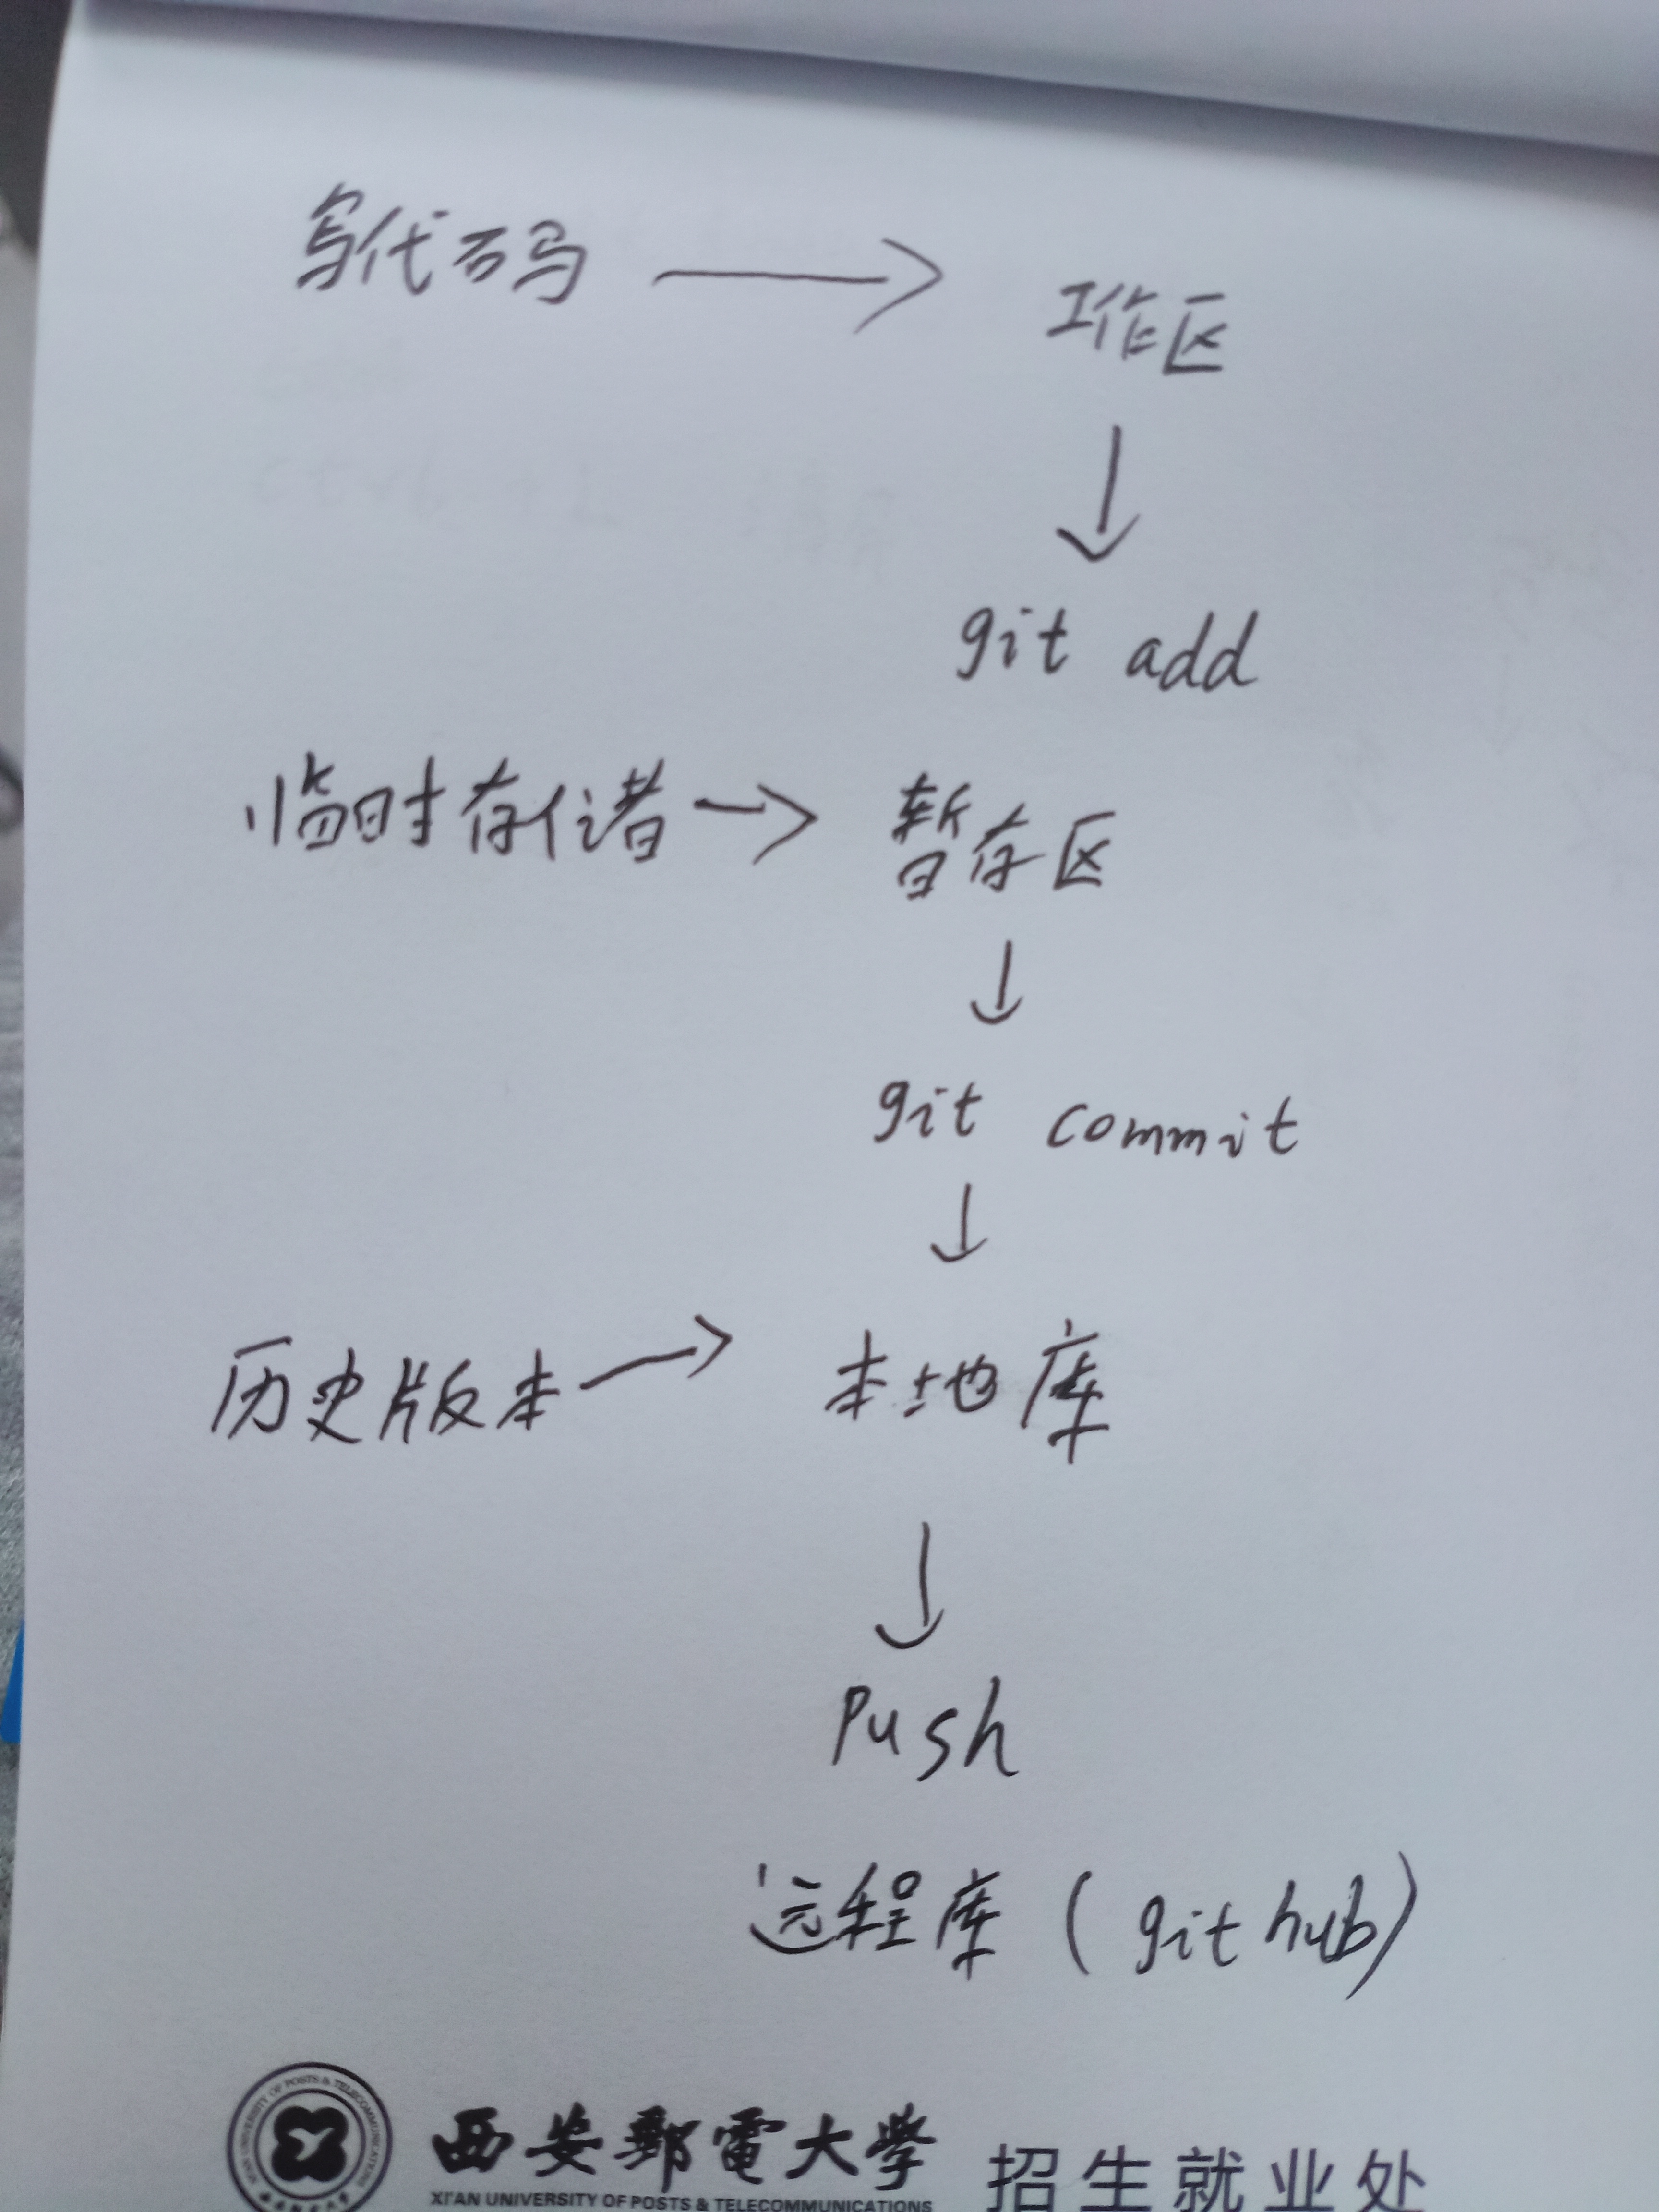 写代码 → 工作区
↓
git add
临时存储 → 暂存区
↓
git commit
↓
历史版本 → 本地库
↓
Push
远程库 (git hub)
西安郵電大學 招生就业处
XI'AN UNIVERSITY OF POSTS & TELECOMMUNICATIONS